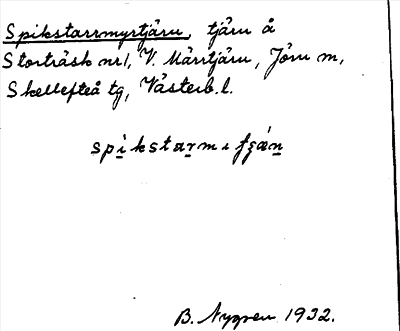 Spikstarrmyrtjärn, tjärn å
Storträsk nr 1, V. Mårrtjärn, Jörn sn,
Skellefteå tg, Västerb. l.
B. Nygren 1932.